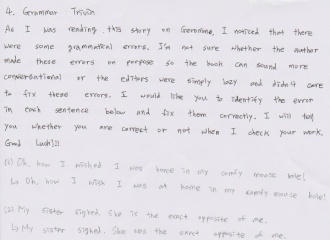 4. Grammar Trivia
As I was reading this story on Geronimo, I noticed that there
were some grammatical errors. I'm not sure whether the author
made these errors on purpose so the book can sound more
conversational or the editors were simply lazy and didn't care
to fix these errors. I would like you to identify the error
in each sentence below and fix them correctly. I will tell
you whether you are correct or not when I check your work.
Good Luck!!!
(1) Oh, how I wished I was home in my comfy mouse hole!
↳ Oh, how I wish I was at home in my comfy mouse hole!
(2) My sister sighed. She is the exact opposite of me.
↳ My sister sighed. She was the exact opposite of me.